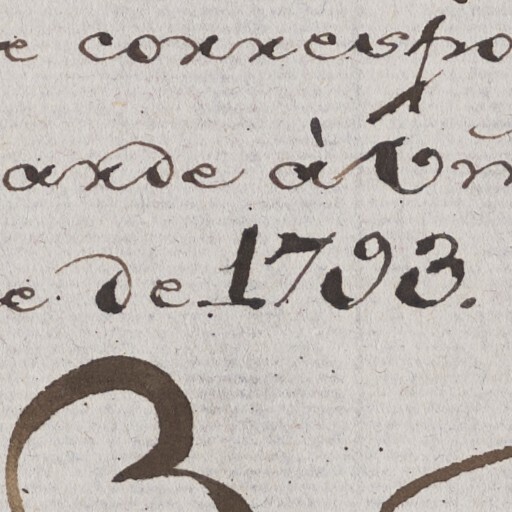 e correspo
arde à Vm
e de 1793.